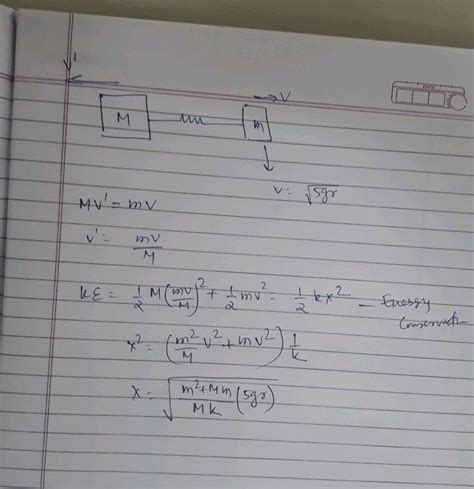 v'
→ v
M m
v = √5gr
Mv' = mv
v' = mv/M
kE = 1/2 M(mv/M)² + 1/2 mv² = 1/2 kx² — Energy
Conservation
x² = (m²/M v² + mv²) 1/k
x = √((m²+Mm)/(Mk) (5gr))